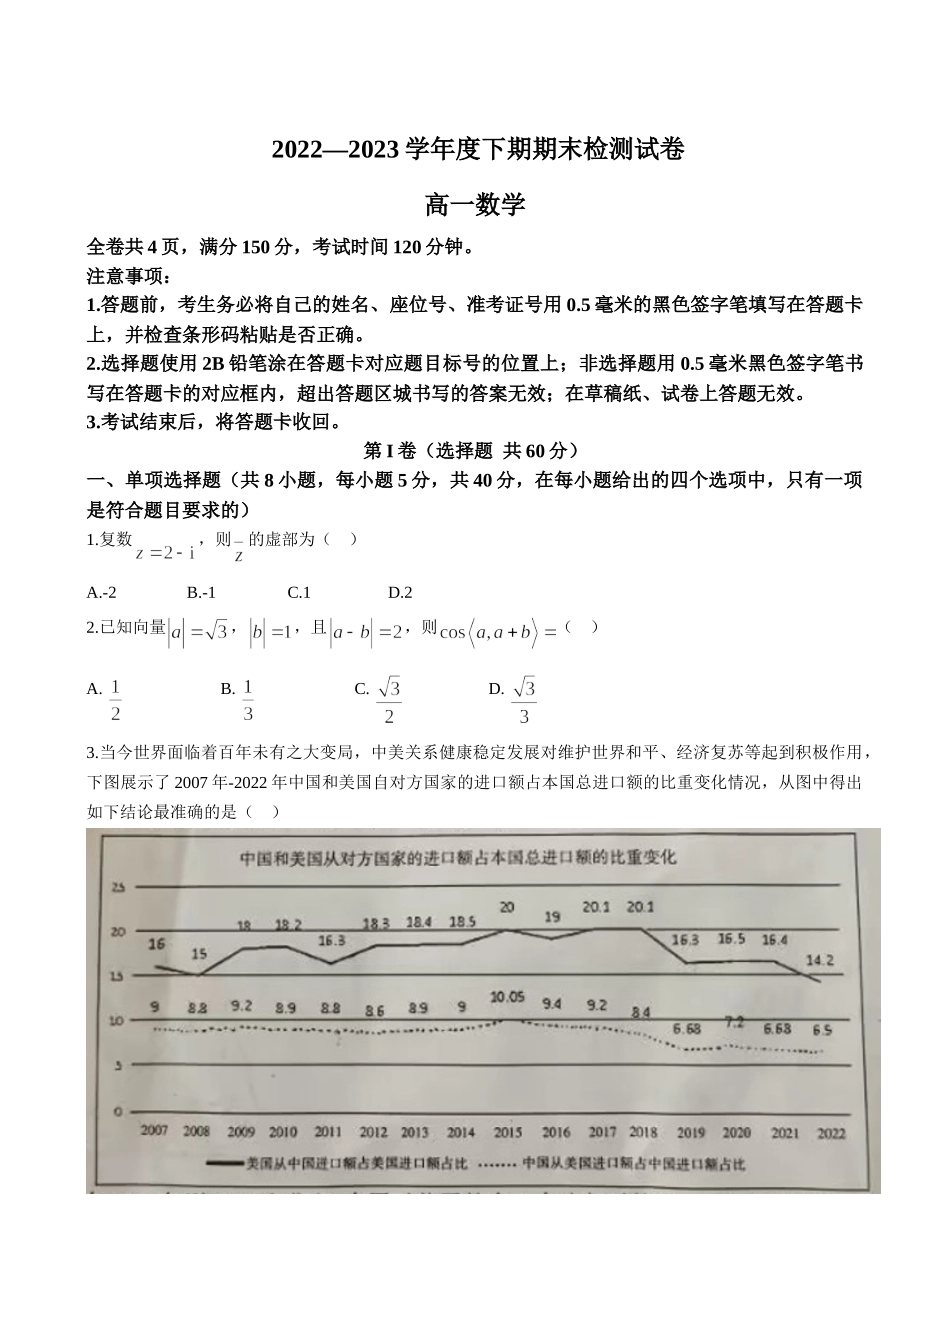 2022—2023学年度下期期末检测试卷
高一数学
全卷共4页，满分150分，考试时间120分钟。
注意事项：
1.答题前，考生务必将自己的姓名、座位号、准考证号用0.5毫米的黑色签字笔填写在答题卡
上，并检查条形码粘贴是否正确。
2.选择题使用2B铅笔涂在答题卡对应题目标号的位置上；非选择题用0.5毫米黑色签字笔书
写在答题卡的对应框内，超出答题区城书写的答案无效；在草稿纸、试卷上答题无效。
3.考试结束后，将答题卡收回。
第I卷（选择题 共60分）
一、单项选择题（共8小题，每小题5分，共40分，在每小题给出的四个选项中，只有一项
是符合题目要求的）
1.复数z=2-i，则z̄的虚部为（ ）
A.-2 B.-1 C.1 D.2
2.已知向量|a|=√3，|b|=1，且|a-b|=2，则cos⟨a,a+b⟩=（ ）
A. 1/2 B. 1/3 C. √3/2 D. √3/3
3.当今世界面临着百年未有之大变局，中美关系健康稳定发展对维护世界和平、经济复苏等起到积极作用，
下图展示了2007年-2022年中国和美国自对方国家的进口额占本国总进口额的比重变化情况，从图中得出
如下结论最准确的是（ ）
中国和美国从对方国家的进口额占本国总进口额的比重变化
25
20
15
10
5
0
16 15 18 18.2 16.3 18.3 18.4 18.5 20 19 20.1 20.1 16.3 16.5 16.4 14.2
9 8.8 9.2 8.9 8.8 8.6 8.9 9 10.05 9.4 9.2 8.4 6.68 7.2 6.68 6.5
2007 2008 2009 2010 2011 2012 2013 2014 2015 2016 2017 2018 2019 2020 2021 2022
美国从中国进口额占美国进口额占比 中国从美国进口额占中国进口额占比